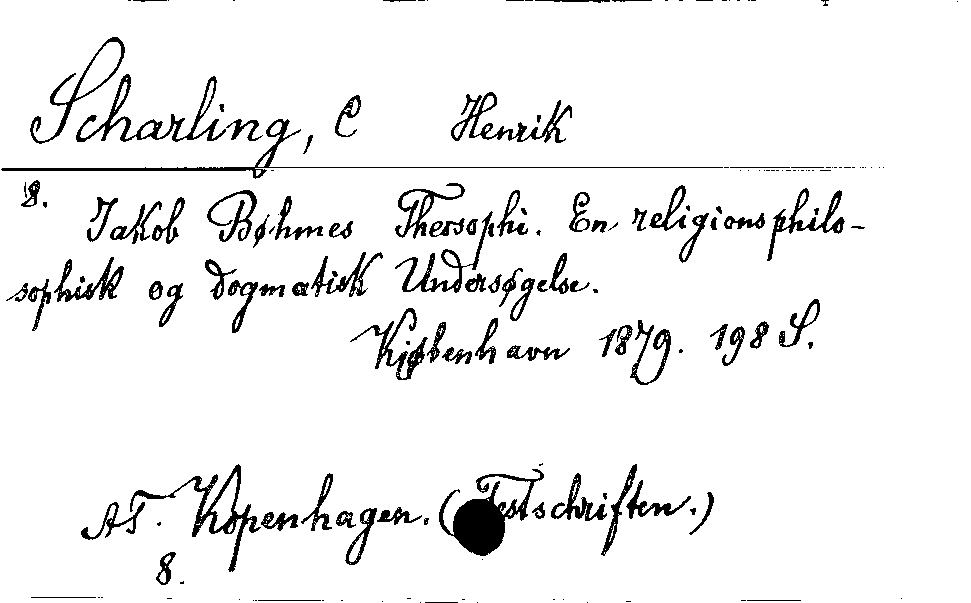 Scharling, C Henrik
8. Jakob Bøhmes Theosophi. En religionsphilo-
sophisk og dogmatisk Undersøgelse.
Kjøbenhavn 1879. 198 S.
AT. Kopenhagen. (Festschriften.)
8.